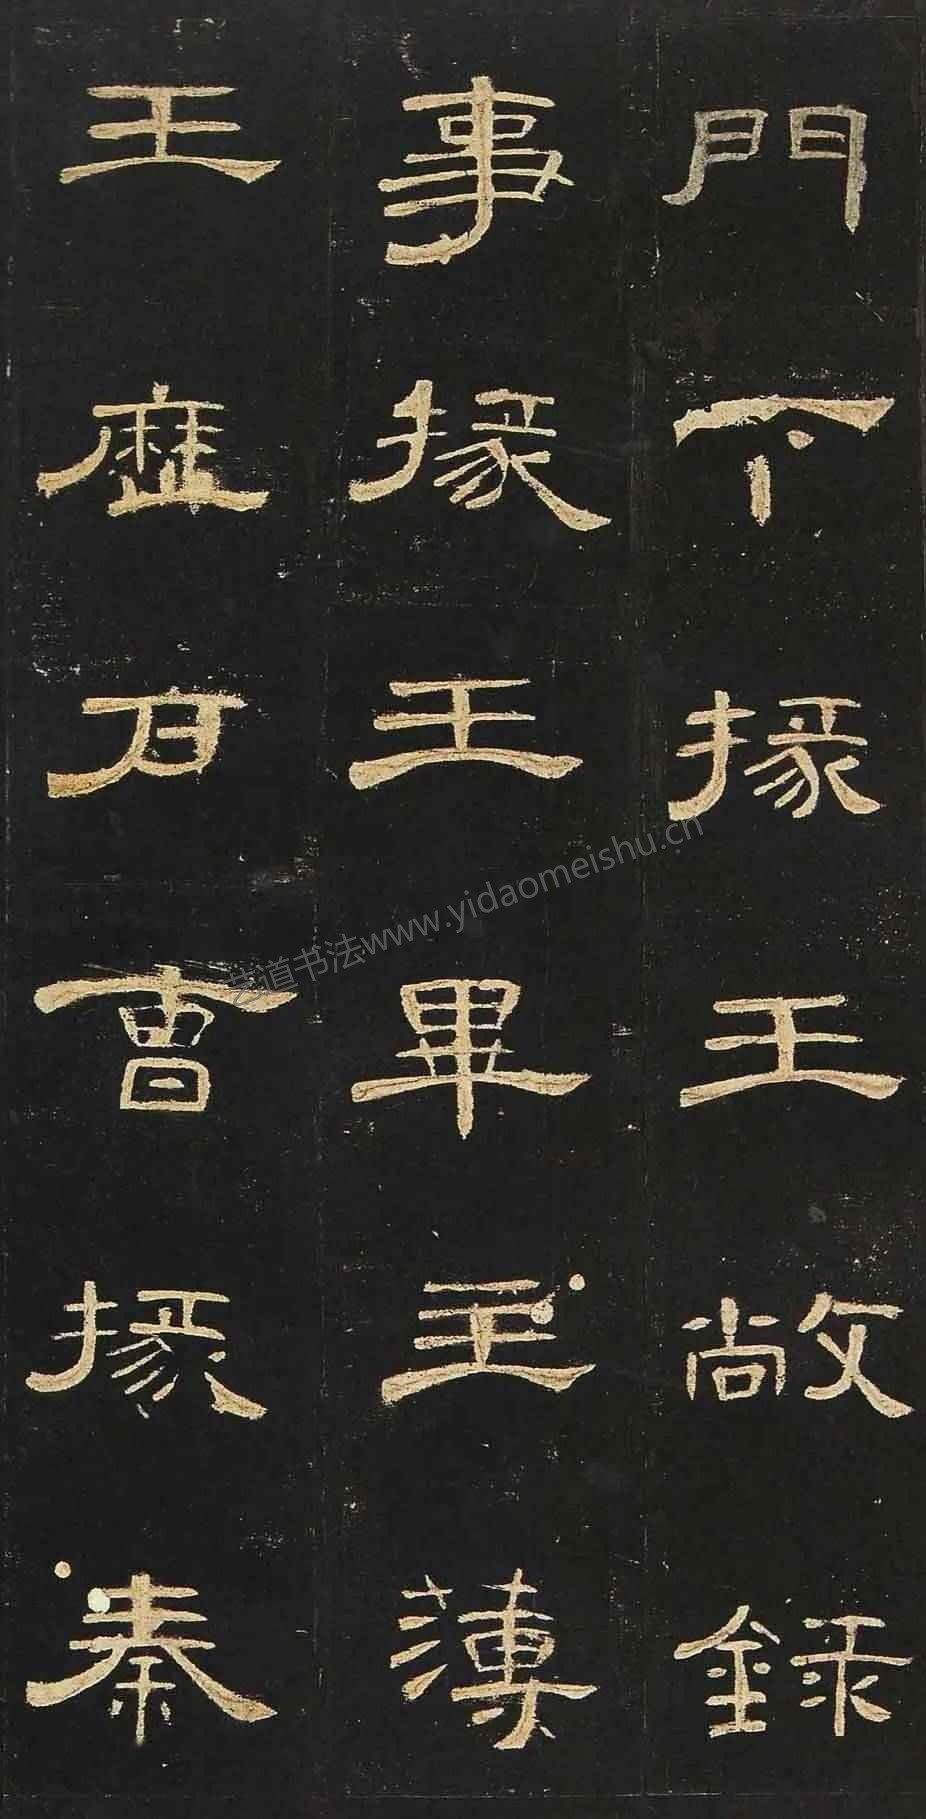 門下掾王敞錄
事掾王畢主薄
王歷戶曹掾秦
艺道书法www.yidaomeishu.cn